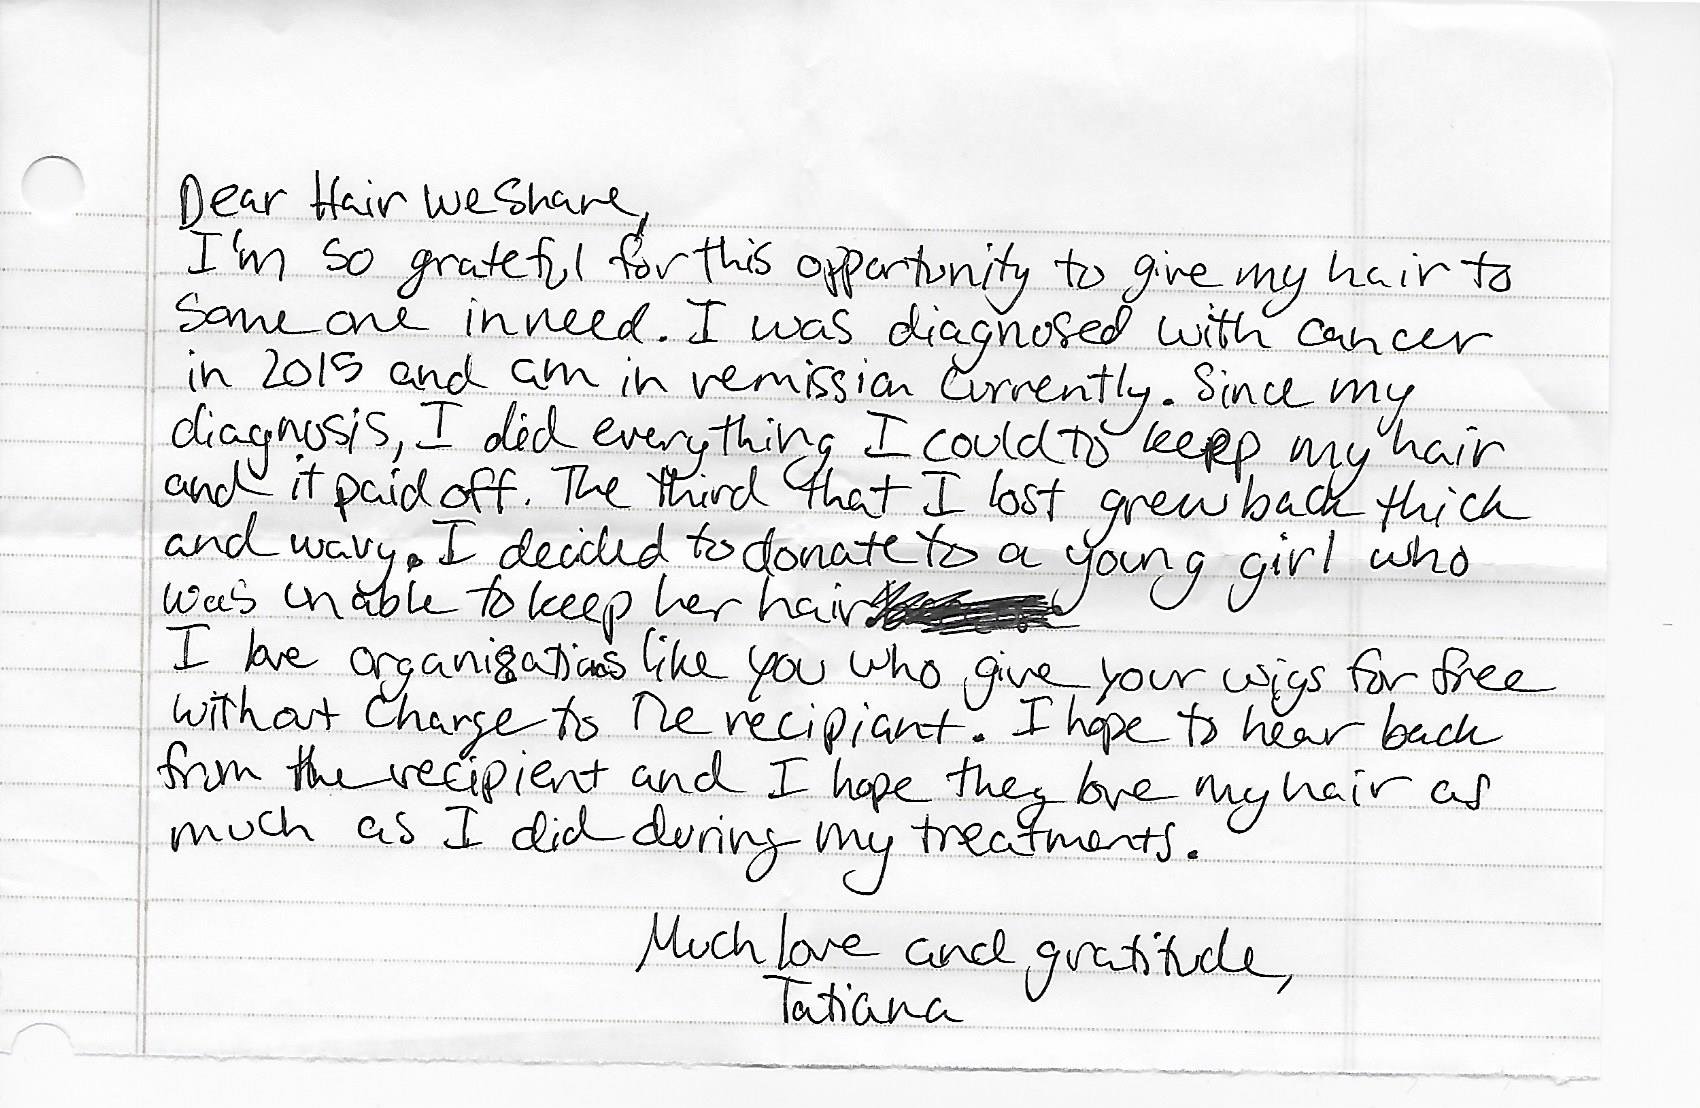 Dear Hair We Share,
I'm so grateful for this opportunity to give my hair to
someone in need. I was diagnosed with cancer
in 2015 and am in remission currently. Since my
diagnosis, I did everything I could to keep my hair
and it paid off. The third that I lost grew back thick
and wavy. I decided to donate to a young girl who
was unable to keep her hair
I love organizations like you who give your wigs for free
without charge to the recipiant. I hope to hear back
from the recipient and I hope they love my hair as
much as I did during my treatments.
Much love and gratitude,
Tatiana